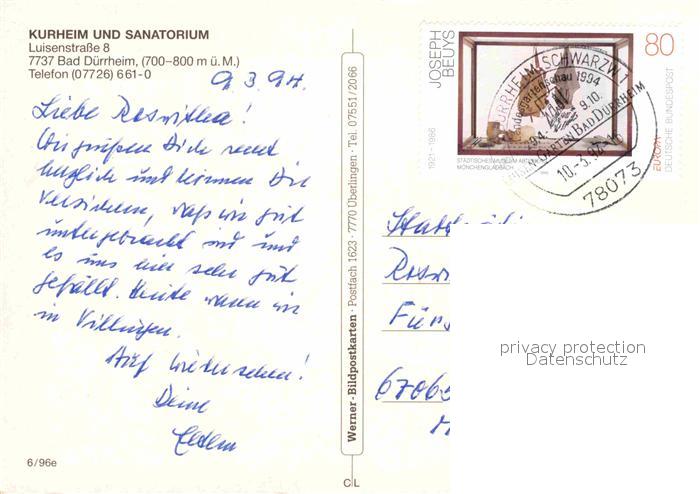 KURHEIM UND SANATORIUM
Luisenstraße 8
7737 Bad Dürrheim, (700–800 m ü. M.)
Telefon (07726) 661-0
9.3.94.
Liebe Roswitha!
Wir grüßen Dich recht
herzlich und können Dir
versichern, daß wir gut
untergebracht sind und
es uns hier sehr gut
gefällt. Heute waren wir
in Villingen.
Auf Wiedersehen!
Deine
Eltern
6/96e
Werner-Bildpostkarten · Postfach 1623 · 7770 Überlingen · Tel. 07551/2066
C L
JOSEPH
BEUYS
1921–1986
80
STÄDTISCHES MUSEUM
MÖNCHENGLADBACH
EUROPA
DEUTSCHE BUNDESPOST
DÜRRHEIM, SCHWARZW 1
Landesgartenschau 1994
9.10.
BAD DÜRRHEIM
10.-3.94
78073
Rosw
Für
6706
privacy protection
Datenschutz